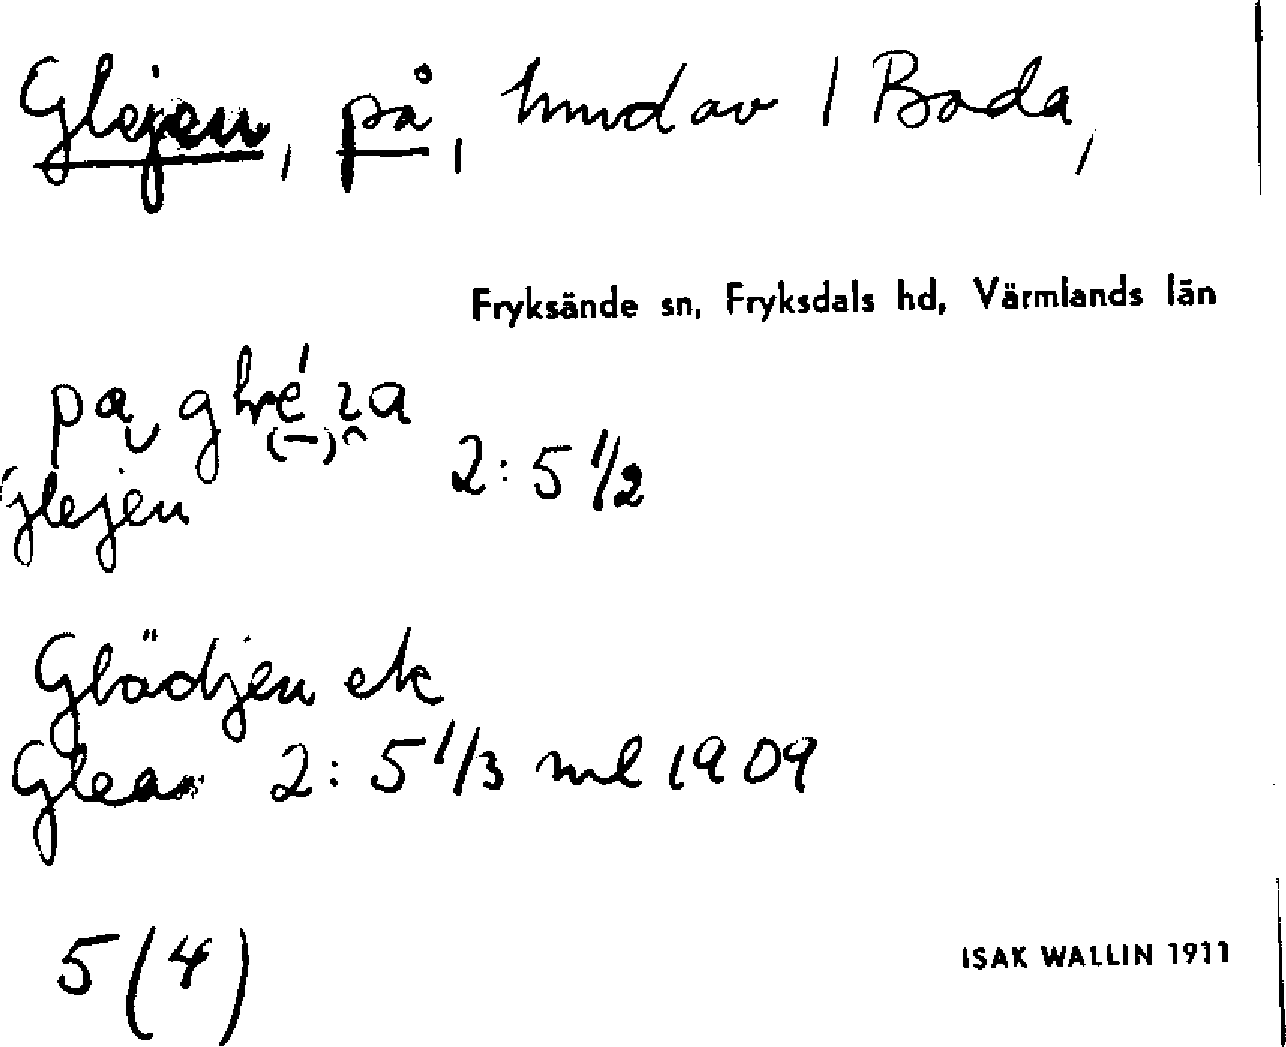 Glejen, på, hmd av 1 Bada,
Fryksände sn, Fryksdals hd, Värmlands län
pa
glejen 2:5 1/2
Glädjen ek
Glean 2:5 1/3 ml 1909
5(4)
ISAK WALLIN 1911